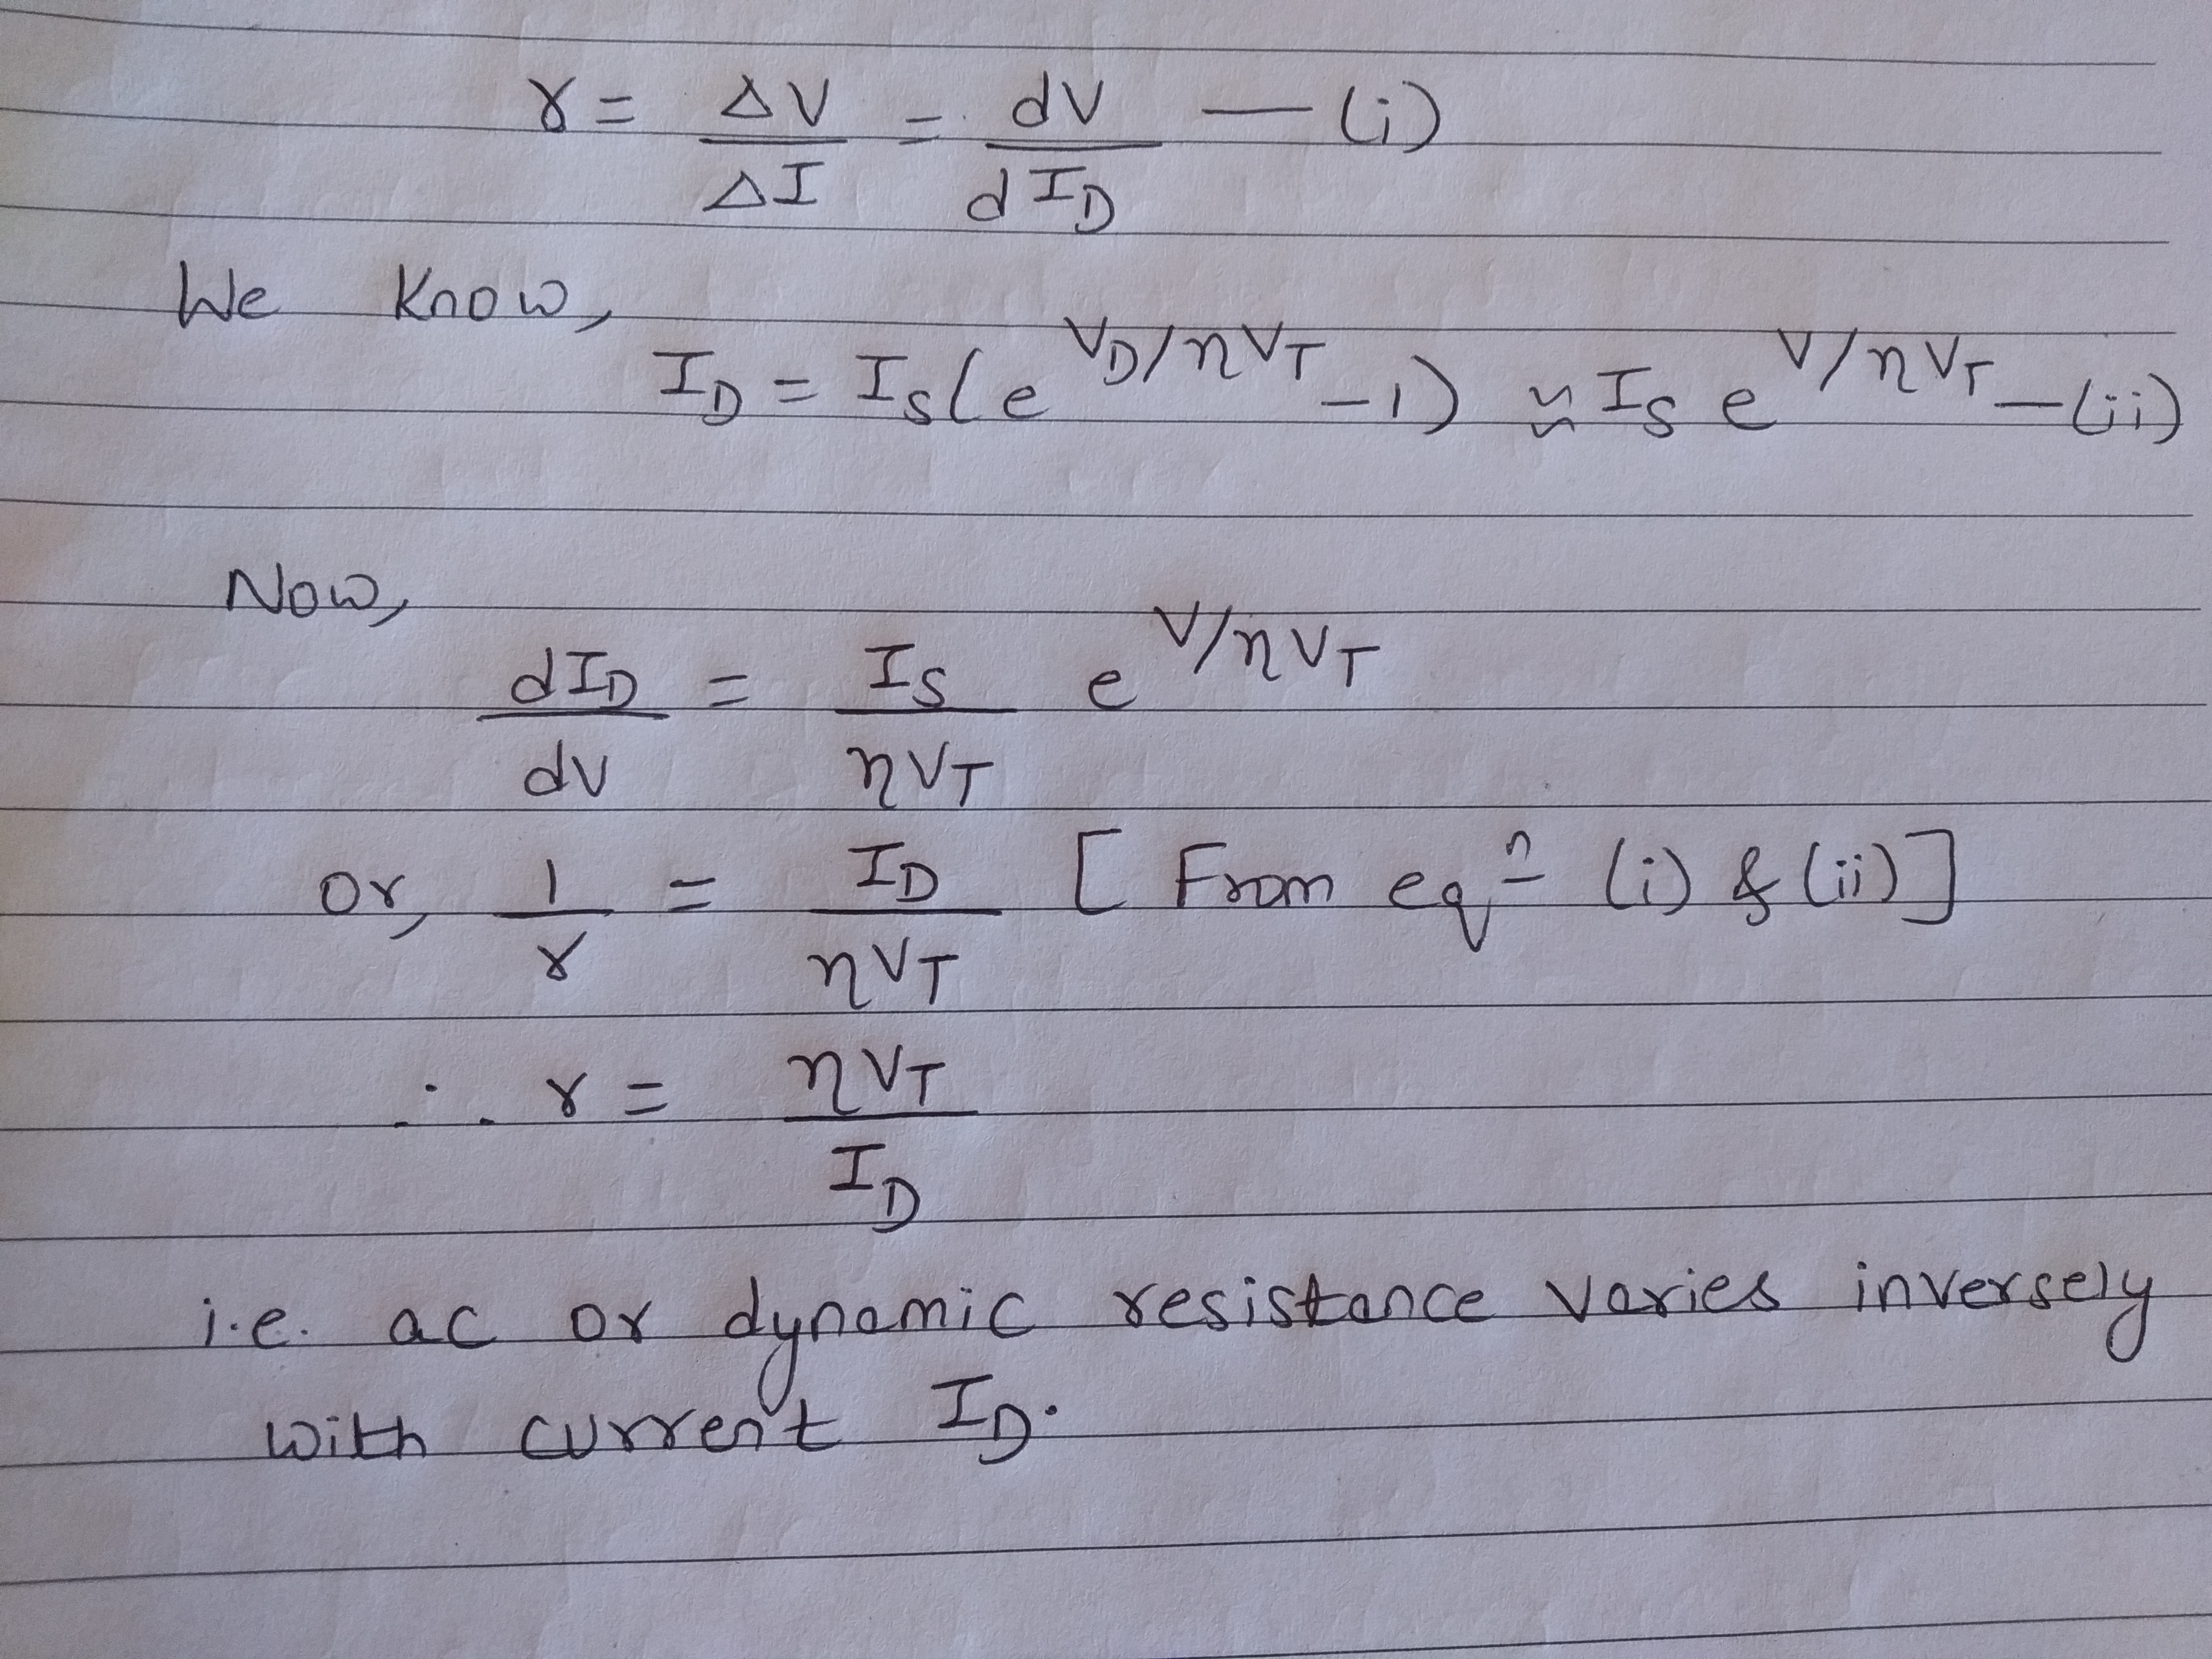 r = ΔV/ΔI = dV/dI_D — (i)
We know,
I_D = I_S(e^{V_D/ηV_T} - 1) ≈ I_S e^{V/ηV_T} — (ii)
Now,
dI_D/dV = I_S/ηV_T e^{V/ηV_T}
or, 1/r = I_D/ηV_T [From eqⁿ (i) & (ii)]
∴ r = ηV_T/I_D
i.e. ac or dynamic resistance varies inversely
with current I_D.